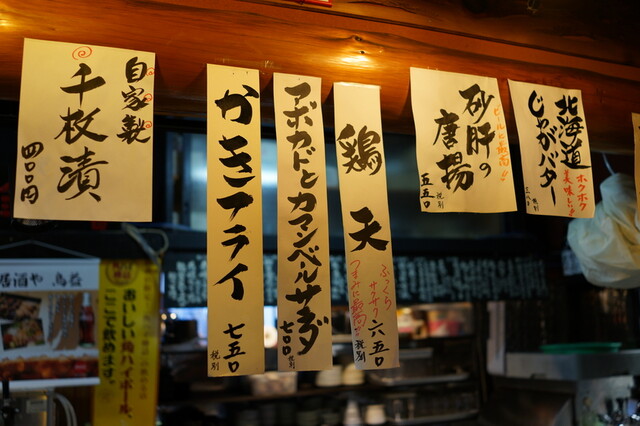 自家製
千枚漬
四〇〇円
税別
かきフライ
七五〇
税別
アボカドとカマンベールサラダ
七〇〇
税別
鶏天
ふっくら
サクサク
六五〇
税別
砂肝の
唐揚
五五〇
税別
北海道
じゃがバター
ホクホク
美味い!!
居酒や 鳥益
おいしい角ハイボール、
ここで飲めます